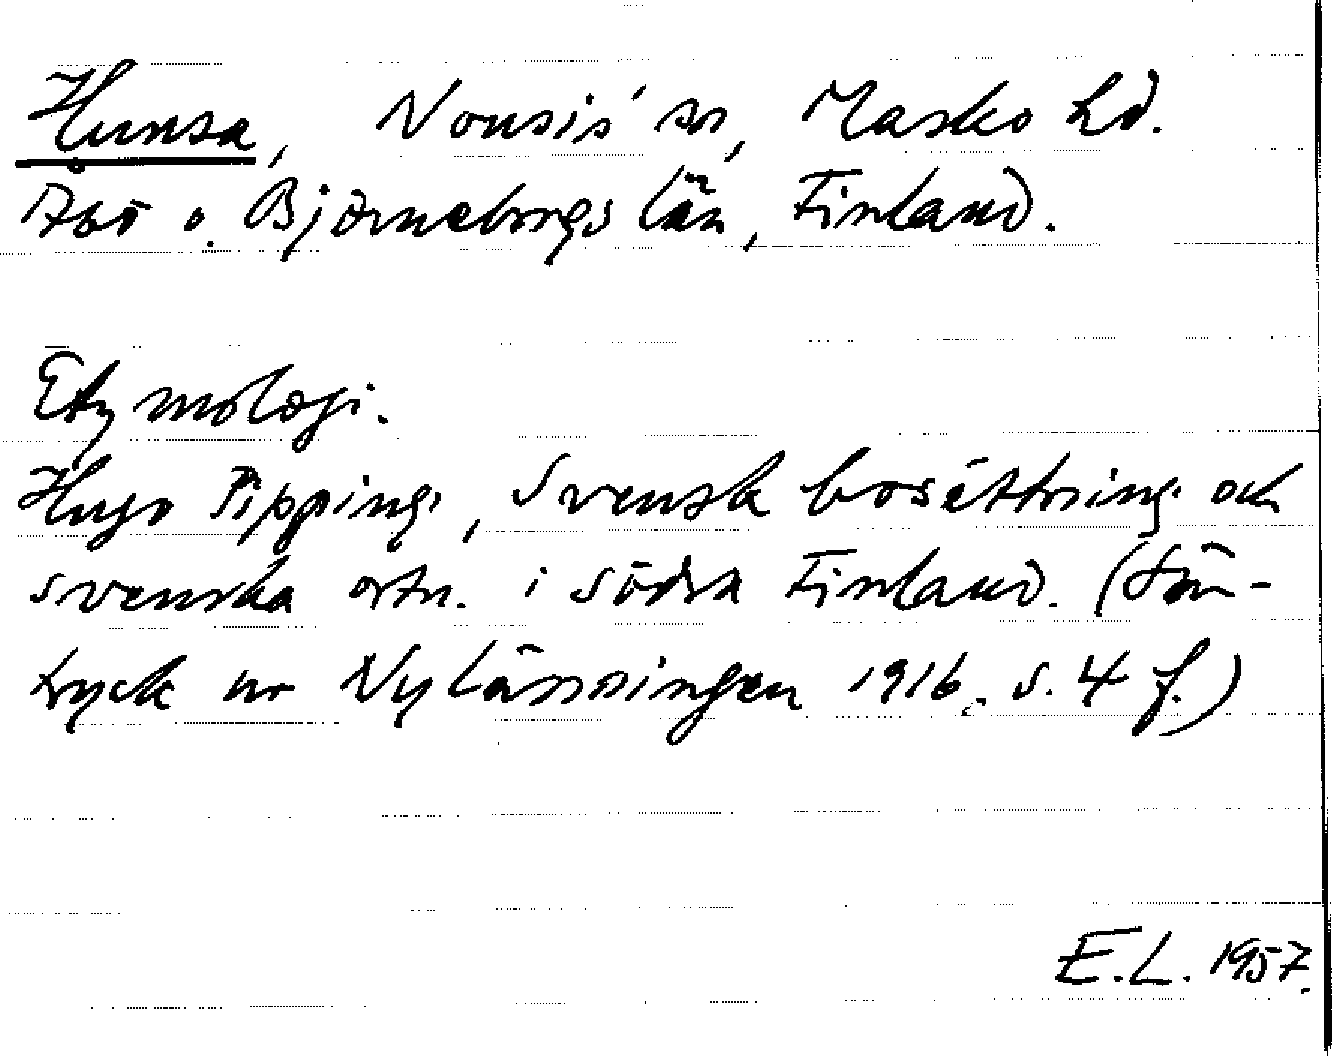 Hunsa, Nousis sn, Masko hd.
Åbo o. Björneborgs län, Finland.
Etymologi.
Hugo Pipping, Svensk bosättning och
svenska ortn. i södra Finland. (Sär-
tryck ur Nylänningen 1916. s. 4 f.)
E.L. 1957.